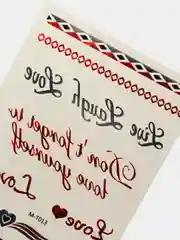 Live Laugh Love
Don't forget to
love yourself
Love
Love
M-T013